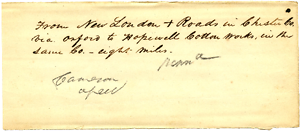 From New London + Roads in Chester Co.
via Oxford to Hopewell Cotton Works, in the
same Co. – eight miles.
Penna
Cameson